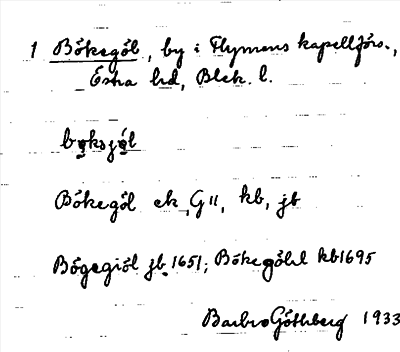 1 Bökegöl, by i Flymens kapellförs.,
Östra hd, Blek. l.
Bökegöl ek, G 11, kb, jb
Bögegiöl jb 1651; Bökegöhl kb 1695
Barbro Göthberg 1933